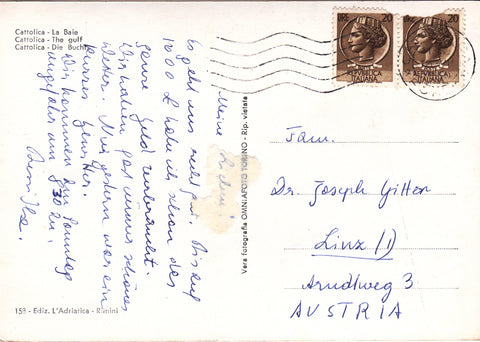 Cattolica - La Baie
Cattolica - The gulf
Cattolica - Die Bucht
Meine Lieben!
Es geht uns recht gut. Bis auf
1000 L habe ich schon das
ganze Geld verbraucht.
Wir haben fast immer schönes
Wetter. Nur gestern war ein
kurzes Gewitter.
Wir kommen den Sonntag
ungefähr um 8 30 an.
Bussi Ilse.
158 - Ediz. L'Adriatica - Rimini
Vera fotografia OMNIAFOTO TORINO - Rip. vietata
LIRE 20
REPUBBLICA
ITALIANA
20
REPUBBLICA
ITALIANA
Fam.
Dr. Joseph Gitter
Linz /D
Arndtweg 3
AUSTRIA